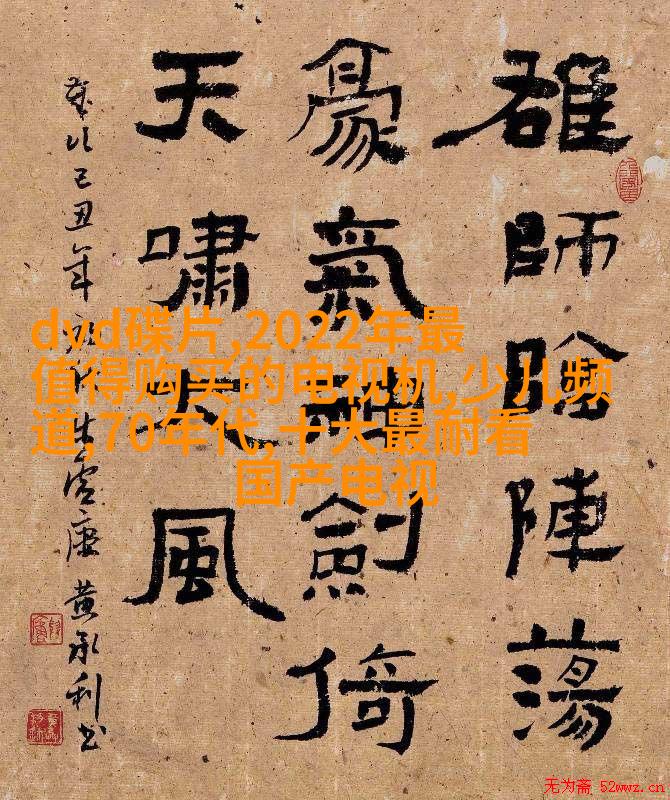 雄師陣蕩
豪氣劍倚
天嘯大風
己丑年
黄永利书
dvd碟片,2022年最
值得购买的电视机,少儿频
道,70年代,十大最耐看
国产电视
无为斋 52wwz.cn